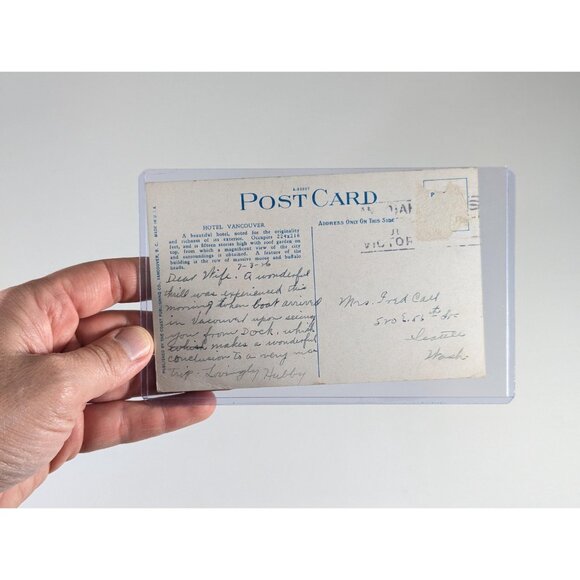 POST CARD
ADDRESS ONLY ON THIS SIDE
HOTEL VANCOUVER
A beautiful hotel, noted for the originality
and richness of its exterior. Occupies 224x216
feet, and is fifteen stories high with roof garden on
top, from which a magnificent view of the city
and surroundings is obtained. A feature of the
building is the row of massive moose and buffalo
heads.
Dear Wife: A wonderful
thrill was experienced this
morning when boat arrived
in Vancouver upon seeing
you from Dock, which
makes a wonderful
conclusion to a very nice
trip. Lovingly Hubby
PUBLISHED BY THE COAST PUBLISHING CO., VANCOUVER, B. C. MADE IN U. S. A.
VICTOR
Mrs. Fred Call
Seattle
Wash.